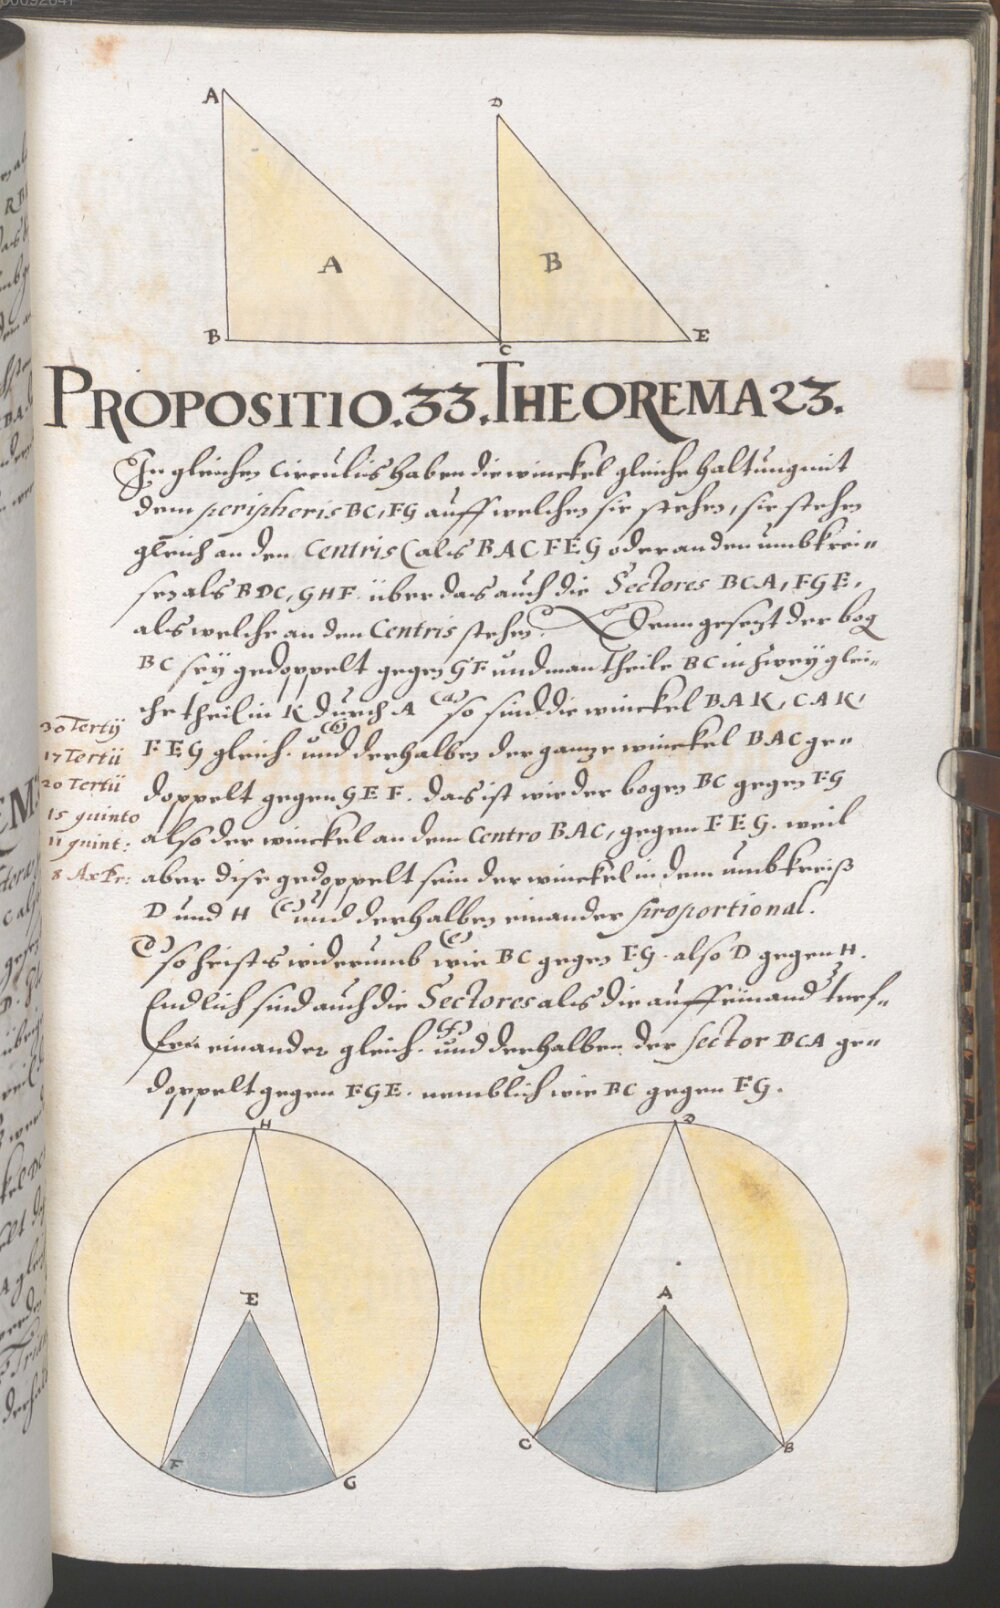 A
D
A
B
B
C
E
PROPOSITIO.33.THEOREMA 23.
In gleichen circulus haben die winckel gleiche haltung mit
dem peripheris BC, FG auff welchen sie stehen, sie stehen
gleich an den Centris (als BAC FEG oder an den umbkrei=
sen als BDC, GHF. über das auch die Sectores BCA, FGE,
als welche an den Centris stehen. Denn gesetzt der bog
BC seÿ gedoppelt gegen GF und man theile BC in zweÿ glei=
che theil in K durch A (a) so sind die winckel BAK, CAK,
FEG gleich. (b) und derhalben der gantze winckel BAC ge=
doppelt gegen GEF. das ist wie der bogen BC gegen FG
also der winckel an dem Centro BAC, gegen FEG. weil
aber dise gedoppelt sein der winckel in dem umbkreiß
D und H (c) und derhalben einander proportional.
(d) so heist es widerumb (e) wie BC gegen FG. also D gegen H.
Endlich sind auch die Sectores als die auff einand tref=
fen einander gleich. (f) und derhalben der sector BCA ge=
doppelt gegen FGE. nemblich wie BC gegen FG.
30 Tertÿ
17 Tertii
20 Tertii
15 quinto
11 quint:
8 Ax Pr:
H
E
F
G
D
A
C
B